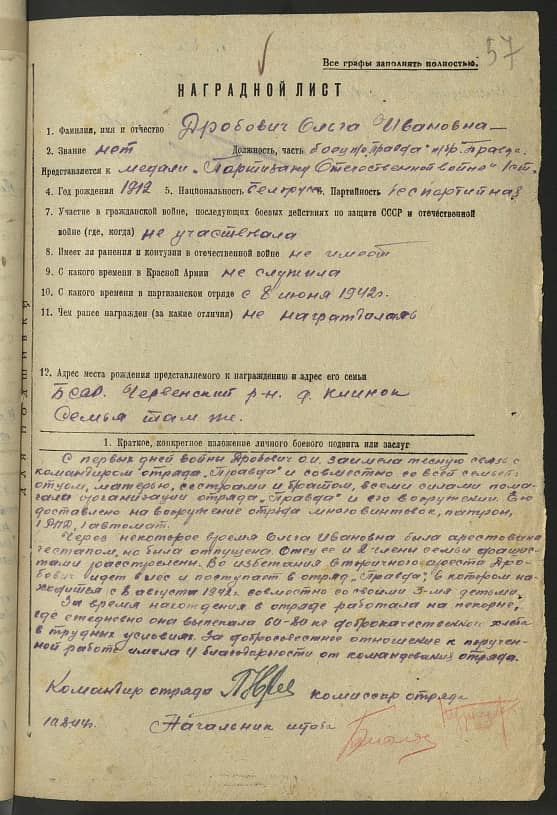 57
Все графы заполнять полностью.
НАГРАДНОЙ ЛИСТ
1. Фамилия, имя и отчество Дробович Ольга Ивановна
2. Звание нет Должность, часть боец п/о "Правда"
Представляется к медали "Партизану Отечественной войны" I ст.
4. Год рождения 1912 5. Национальность белорус. Партийность беспартийная
7. Участие в гражданской войне, последующих боевых действиях по защите СССР и отечественной
войне (где, когда) не участвовала
8. Имеет ли ранения и контузии в отечественной войне не имеет
9. С какого времени в Красной Армии не служила
10. С какого времени в партизанском отряде с 8 июня 1942г.
11. Чем ранее награжден (за какие отличия) не награждалась
12. Адрес места рождения представляемого к награждению и адрес его семьи
БССР. Червенский р-н. д. Клинок
Семья там же.
для подшивки
1. Краткое, конкретное изложение личного боевого подвига или заслуг
С первых дней войны Дробович О.И. заимела тесную связь с
командиром отряда "Правда" и совместно со всей семьей:
отцом, матерью, сестрами и братом, всеми силами помо-
гала организации отряда "Правда" и его вооружении. Ею
доставлено на вооружение отряда много винтовок, патрон,
1 РПД, 1 автомат.
Через некоторое время Ольга Ивановна была арестована
гестапом, но была отпущена. Отец ее и 2 члены семьи фашис-
тами расстреляны. Во избежания вторичного ареста Дро-
бович идет в лес и поступает в отряд "Правда", в котором на-
ходится с 8 августа 1942г. совместно со своими 3-мя детьми.
За время нахождения в отряде работала на пекарне,
где ежедневно она выпекала 60-80 кг доброкачественного хлеба
в трудных условиях. За добросовестное отношение к поручен-
ной работе имела 4 благодарности от командования отряда.
Командир отряда комиссар отряда
Начальник штаба